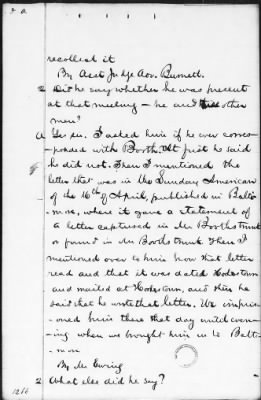 recollect it
By Asst Judge Adv. Burnett.
Q Did he say whether he was present
at that meeting — he and other
men?
A Yes sir. I asked him if he ever corres-
ponded with Booth. At first he said
he did not. Then I mentioned the
letter that was in the Sunday American
of the 16th of April, published in Balti-
more, where it gave a statement of
a letter captured in Mr Booth's trunk
or found in Mr Booth's trunk. Then I
mentioned over to him how that letter
read and that it was dated Hookstown
and mailed at Hookstown, and then he
said that he wrote that letter. We impris-
oned him there that day until even-
ing when we brought him in to Balti-
more
By Mr Ewing
Q What else did he say?